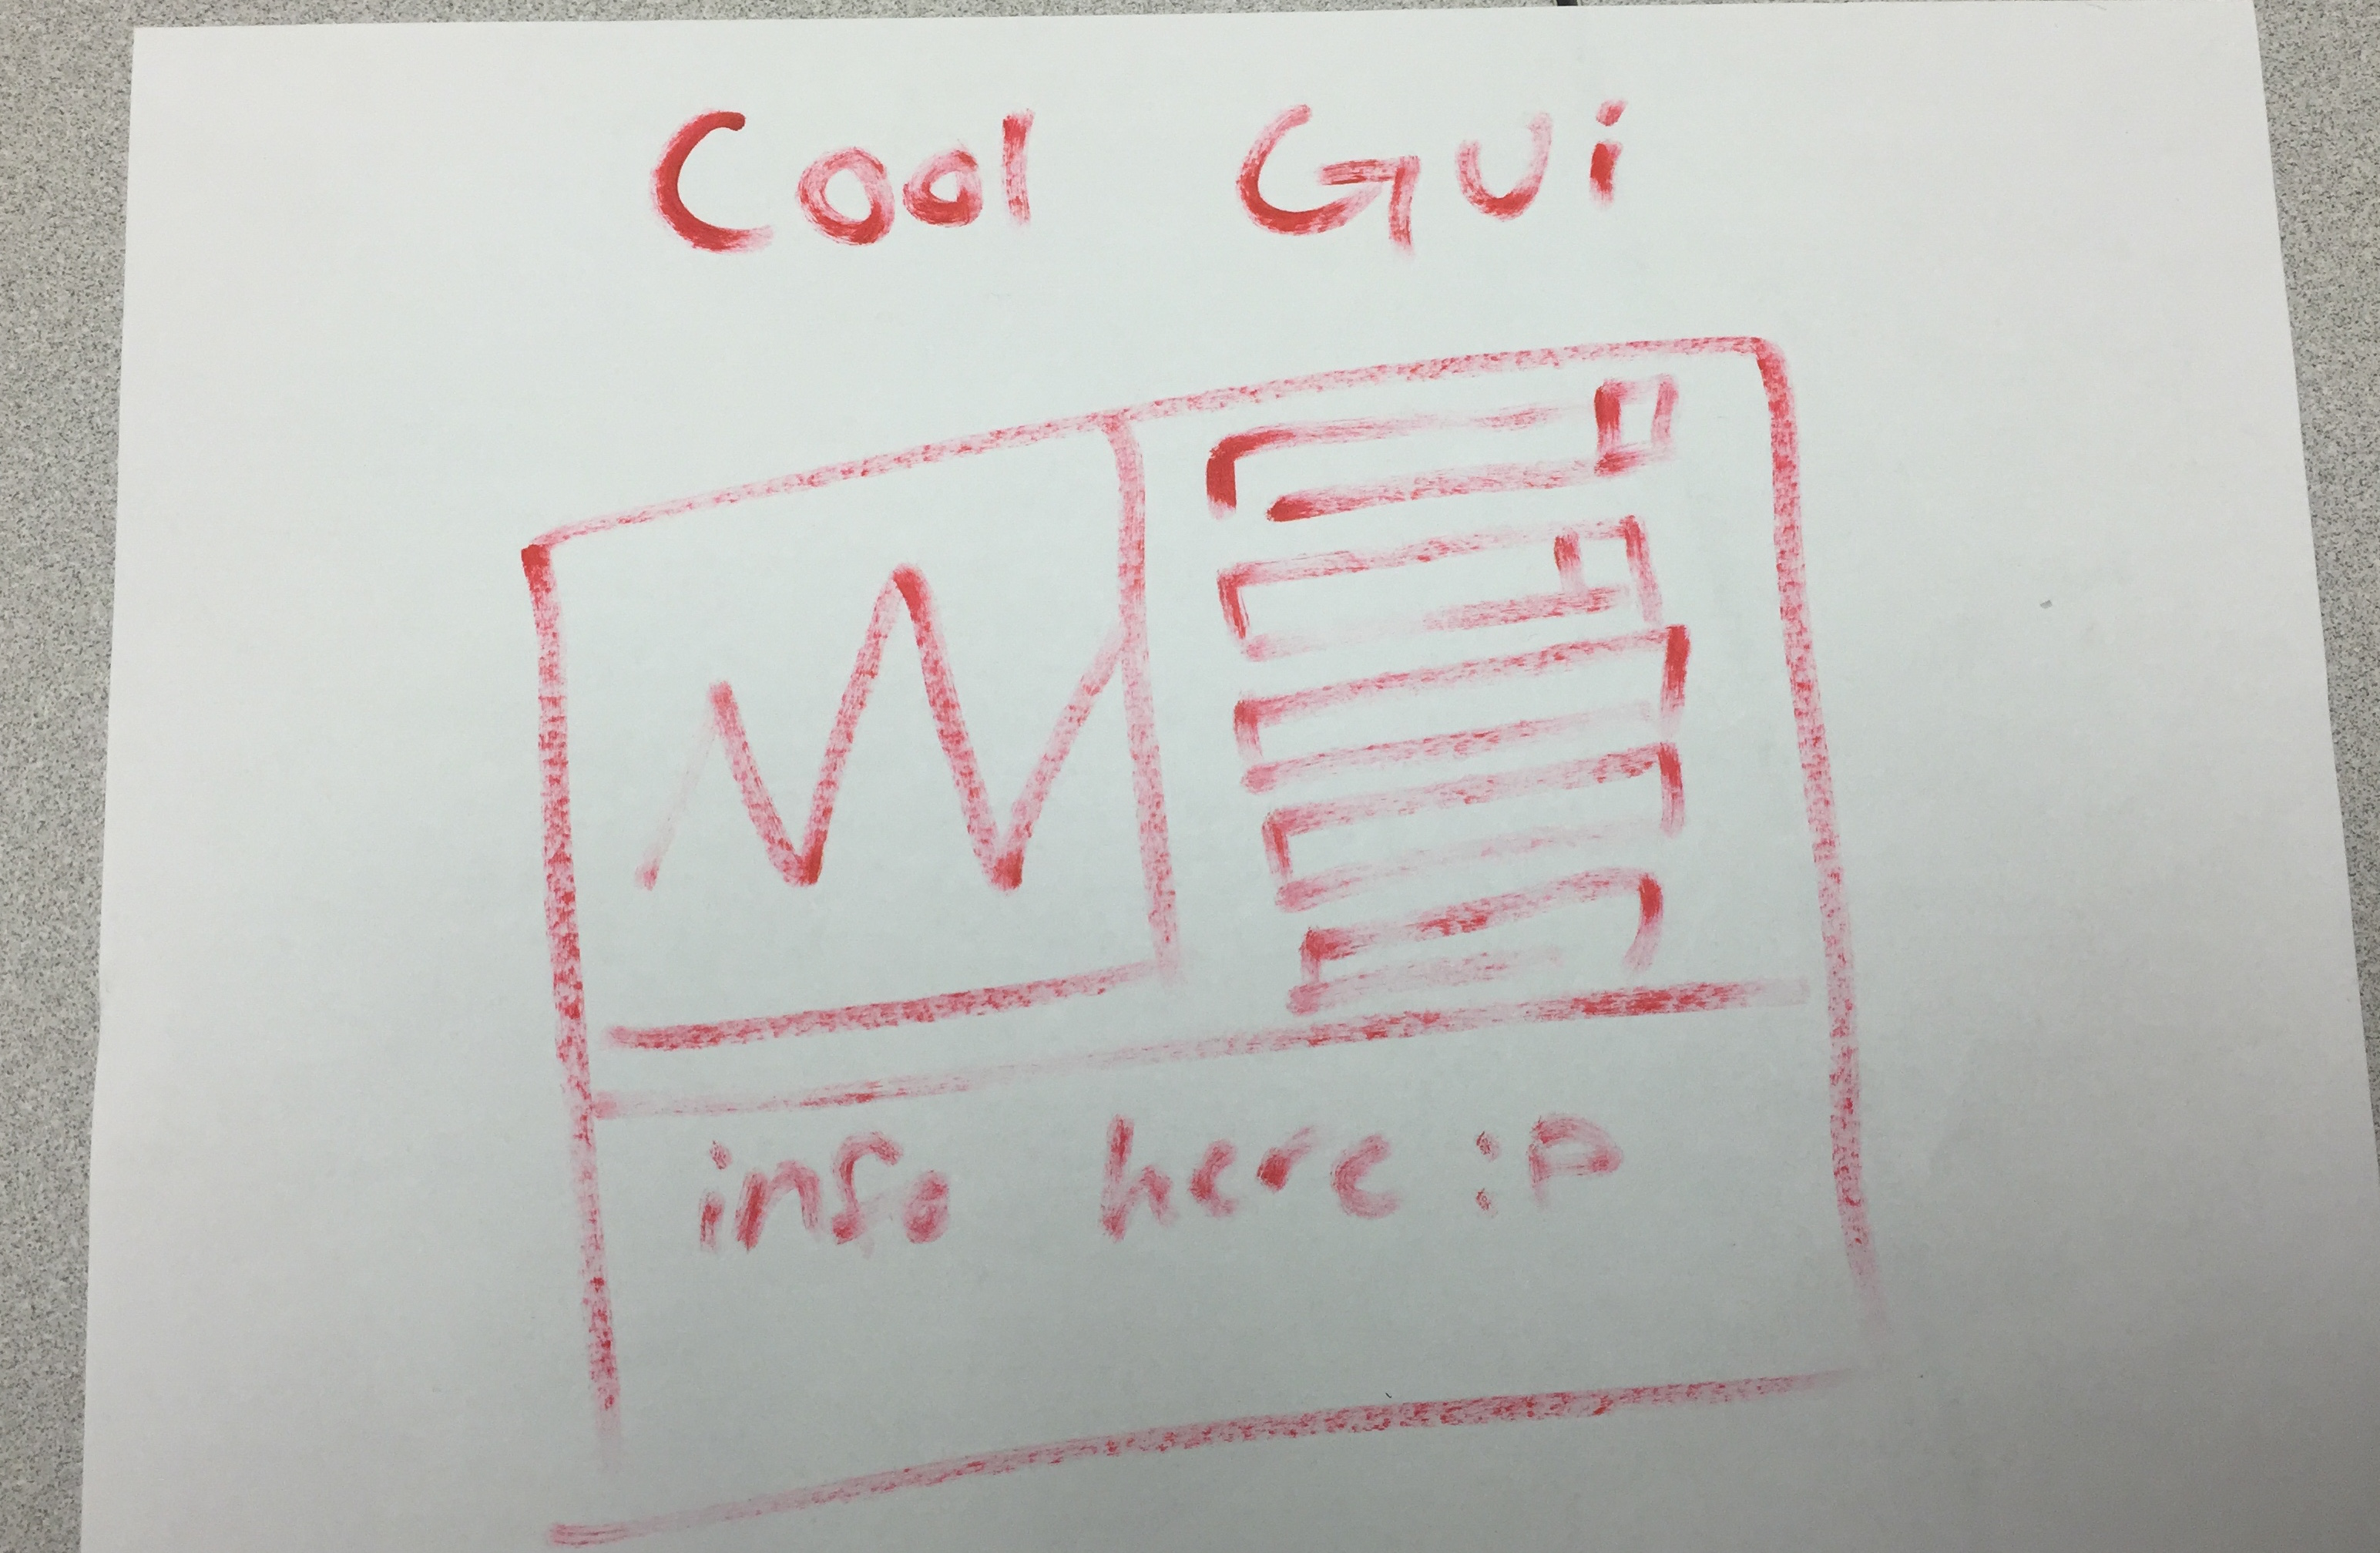 Cool GUi
info here :P